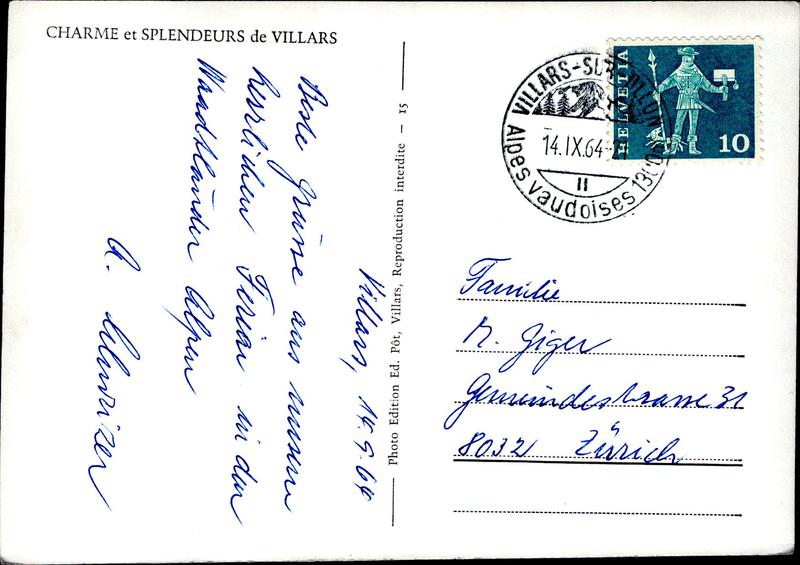 CHARME et SPLENDEURS de VILLARS
Villars, 14.9.64
Beste Grüsse aus unsern
herrlichen Ferien in den
Waadtländer Alpen
Photo Edition Ed. Pôt, Villars, Reproduction interdite – 15
VILLARS-SUR-OLLON
14.IX.64-11
II
Alpes vaudoises 1300m
HELVETIA
10
Familie
Giger
Gemeindestrasse 31
8032 Zürich